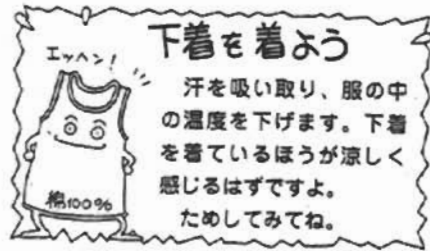 下着を着よう
エッヘン!
汗を吸い取り、服の中
の温度を下げます。下着
を着ているほうが涼しく
感じるはずですよ。
ためしてみてね。
綿100%